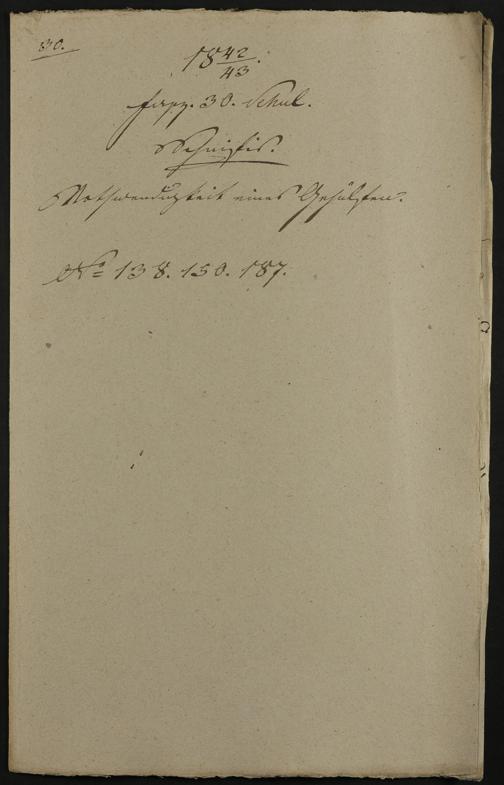 30.
18 42/43.
Fasz. 30. Schul.
Schnifis.
Nothwendigkeit eines Gehülfen.
No 138. 150. 187.